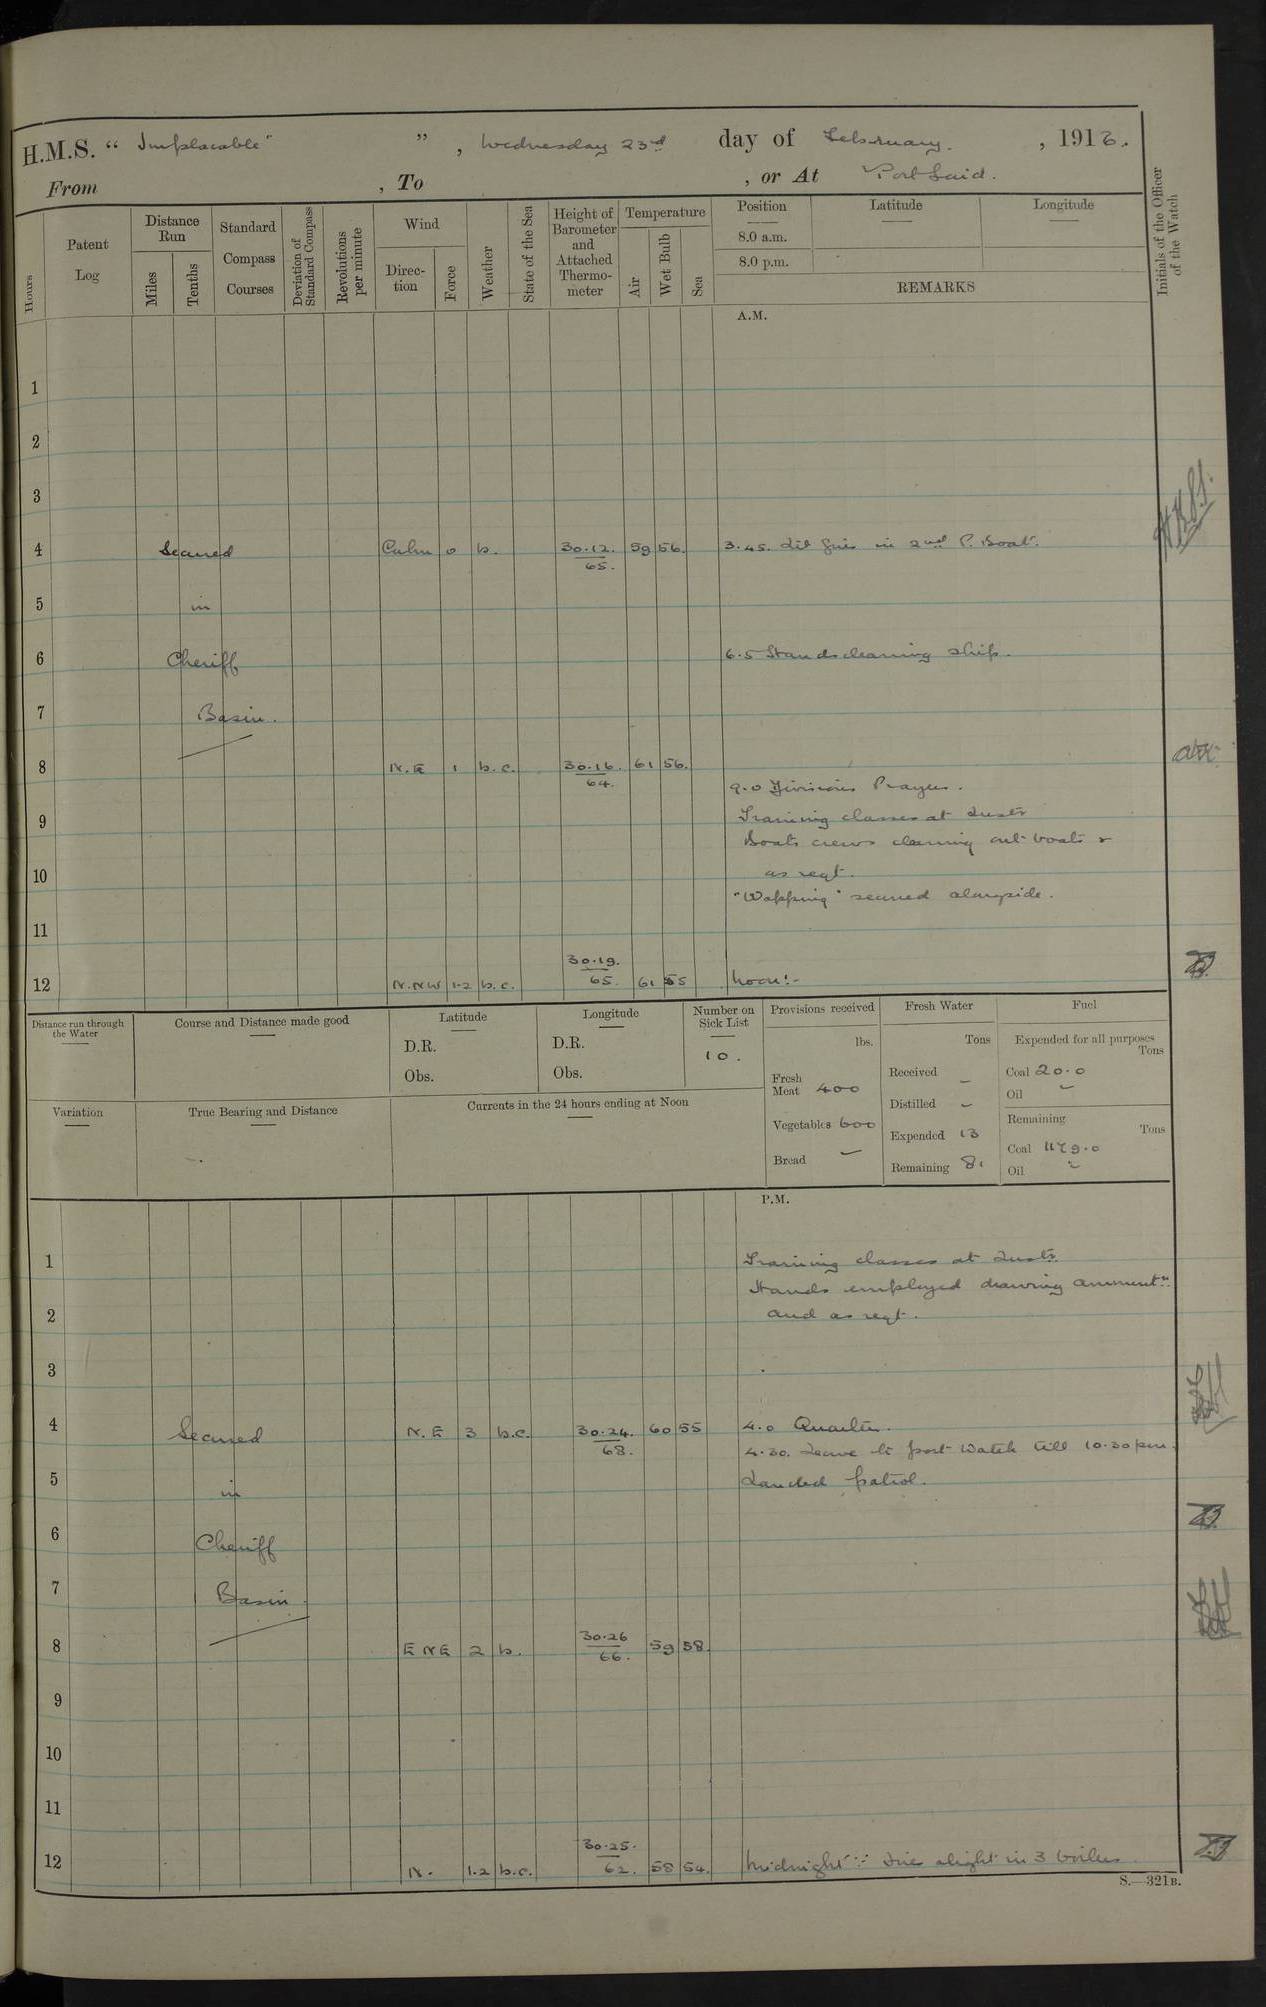 H.M.S. “ Implacable” ”, Wednesday 23rd day of February. , 1916.
From , To , or At Port Said.
Hours
Patent Log
Distance Run
Miles
Tenths
Standard Compass Courses
Deviation of Standard Compass
Revolutions per minute
Wind
Direc-tion
Force
Weather
State of the Sea
Height of Barometer and Attached Thermo-meter
Temperature
Air
Wet Bulb
Sea
Position
8.0 a.m.
8.0 p.m.
Latitude
Longitude
REMARKS
Initials of the Officer of the Watch
A.M.
1
2
3
4 Secured Calm 0 b. 30.12. 65. 59 56. 3.45. Lit fires in 2nd P. Boat.
5 in
6 Cheriff 6.5 Hands cleaning ship.
7 Basin.
8 N.E 1 b.c. 30.16. 64. 61 56.
9.0 Divisions Prayers.
9 Training classes at Instr
Boats crews cleaning out boats &
10 as reqt.
"Wapping" secured alongside.
11
12 N.NW 1-2 b.c. 30.19. 65. 61 55 Noon:-
Distance run through the Water
Course and Distance made good
Latitude
D.R.
Obs.
Longitude
D.R.
Obs.
Number on Sick List
10.
Provisions received
lbs.
Fresh Meat 400
Vegetables 600
Bread –
Fresh Water
Tons
Received –
Distilled –
Expended 13
Remaining 81
Fuel
Expended for all purposes
Tons
Coal 20.0
Oil –
Remaining
Tons
Coal 1179.0
Oil –
Variation
True Bearing and Distance
Currents in the 24 hours ending at Noon
P.M.
1 Training classes at Instr.
Hands employed drawing ammuntn
2 and as reqt.
3
4 Secured N.E 3 b.c. 30.24. 68. 60 55 4.0 Quarters.
4.30. Leave to port Watch till 10.30 pm.
5 in Landed patrol.
6 Cheriff
7 Basin
8 E NE 2 b. 30.26 66. 59 58.
9
10
11
12 N. 1.2 b.c. 30.25. 62. 58 54. Midnight:- Fires alight in 3 boilers
S.—321B.